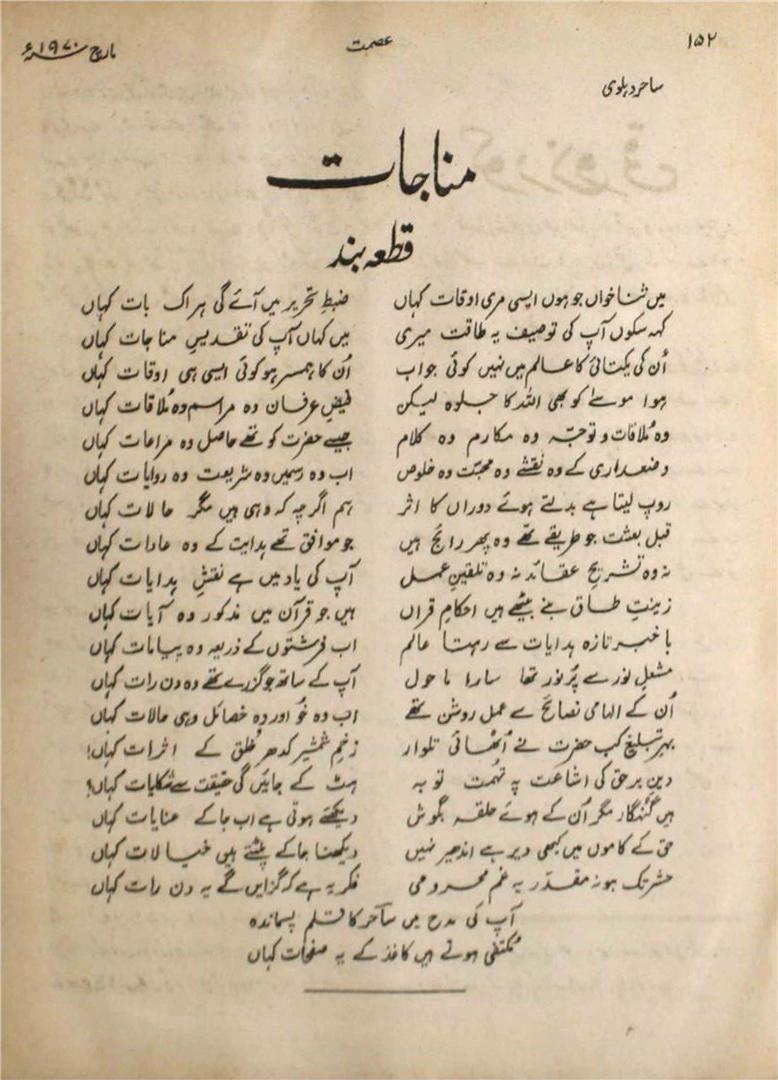 ۱۵۲
عصمت
مارچ ۱۹۷۰ء
ساحر دہلوی
مناجات
قطعہ بند
میں ثنا خواں جو ہوں ایسی مری اوقات کہاں ضبطِ تحریر میں آئے گی ہر اک بات کہاں
کہہ سکوں آپ کی توصیف یہ طاقت میری میں کہاں آپ کی تقدیس مناجات کہاں
اُن کی یکتائی کا عالم میں نہیں کوئی جواب اُن کا ہمسر ہو کوئی ایسی ہی اوقات کہاں
ہوا موسےٰ کو بھی اللہ کا جلوہ لیکن فیضِ عرفان وہ مراسم وہ مُلاقات کہاں
وہ مُلاقات و توجّہ وہ مکارم وہ کلام جیسے حضرت کو تھے حاصل وہ مراعات کہاں
وضعداری کے وہ نقشے وہ محبّت وہ خلوص اب وہ رسمیں وہ شریعت وہ روایات کہاں
روپ لیتا ہے بدلتے ہوئے دوراں کا اثر ہم اگرچہ کہ وہی ہیں مگر حالات کہاں
قبل بعثت جو طریقے تھے وہ پھر رائج ہیں جو موافق تھے ہدایت کے وہ عادات کہاں
نہ وہ تشریحِ عقائد نہ وہ تلقینِ عمل آپ کی یاد میں ہے نقشِ ہدایات کہاں
زینتِ طاق بنے بیٹھے ہیں احکامِ قراں ہیں جو قرآن میں مذکور وہ آیات کہاں
باخبر تازہ ہدایات سے رہتا عالم اب فرشتوں کے ذریعہ وہ پیامات کہاں
مشعلِ نور سے پُر نور تھا سارا ماحول آپ کے ساتھ جو گزرے تھے وہ دن رات کہاں
اُن کے الہامی نصائح سے عمل روشن تھے اب وہ خُو اور وہ خصائل وہی حالات کہاں
بہرِ تبلیغ کب حضرت نے اُٹھائی تلوار زخمِ شمشیر کدھر خُلق کے اثرات کہاں!
دینِ برحق کی اشاعت پہ تُہمت توبہ ہٹ کے جائیں گی حقیقت سے شکایات کہاں؟
ہیں گنہگار مگر اُن کے ہوئے حلقہ بگوش دیکھئے ہوتی ہے اب جا کے عنایات کہاں
حق کے کاموں میں کبھی دیر ہے اندھیر نہیں دیکھنا جا کے پلٹتے ہیں خیالات کہاں
حشر تک ہو نہ مقدّر یہ غمِ محرومی فکر یہ ہے کہ گزاریں گے یہ دن رات کہاں
آپ کی مدح میں ساحر کا قلم پسماندہ
مُکتفی ہوتے ہیں کاغذ کے یہ صفحات کہاں